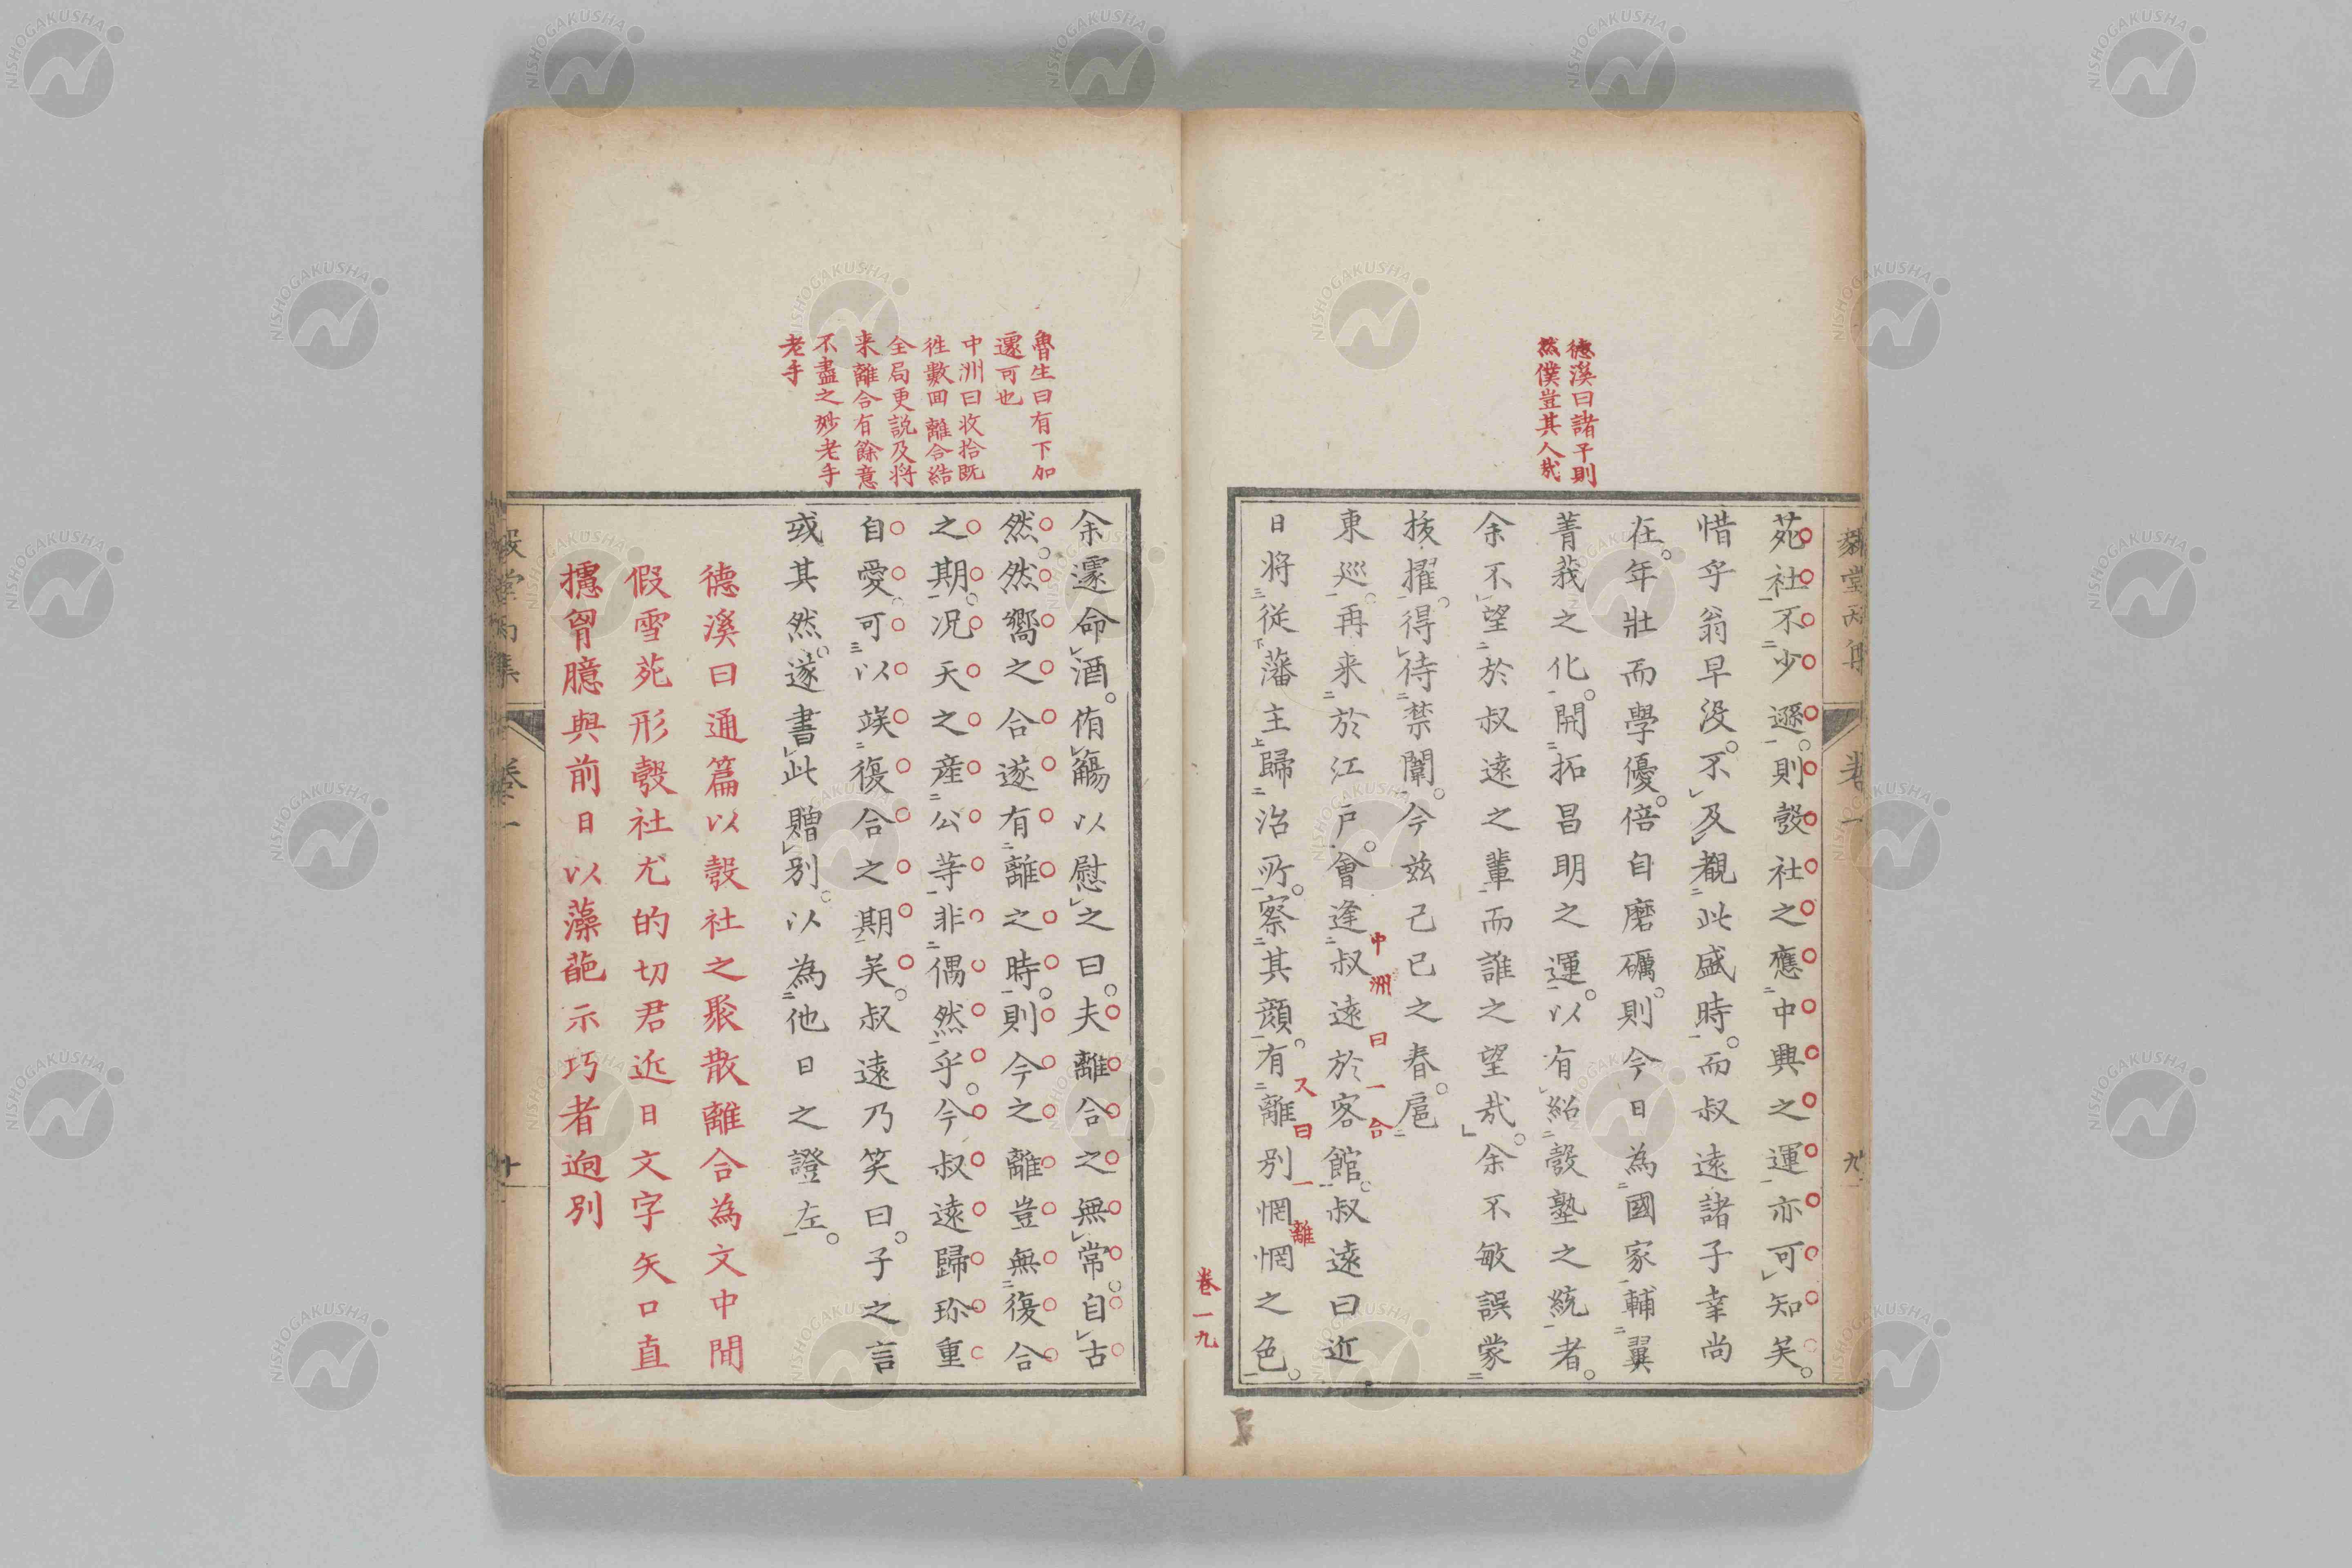 德溪曰諸子則
然僕豈其人哉
苑社不少遜則瑴社之應中興之運亦可知矣
惜乎翁早没不及覩此盛時而叔遠諸子幸尚
在年壯而學優倍自磨礪則今日為國家輔翼
菁莪之化開拓昌明之運以有紹瑴塾之統者
余不望於叔遠之輩而誰之望哉余不敏誤蒙
拔擢得待禁闈今兹己巳之春扈
東巡再来於江戸會逢叔遠於客館叔遠曰近
中洲曰一合
日将從藩主歸治所察其顔有離別惘惘之色
又曰一離
卷一九
魯生曰有下加
還可也
中洲曰收拾既
往數回離合結
全局更説及将
来離合有餘意
不盡之妙老手
老手
余遽命酒侑觴以慰之曰夫離合之無常自古
然然嚮之合遂有離之時則今之離豈無復合
之期况天之産公等非偶然乎今叔遠歸珎重
自愛可以竢復合之期矣叔遠乃笑曰子之言
或其然遂書此贈別以為他日之證左
德溪曰通篇以瑴社之聚散離合為文中間
假雪苑形瑴社尤的切君近日文字矢口直
攄胷臆與前日以藻葩示巧者逈別
卷一